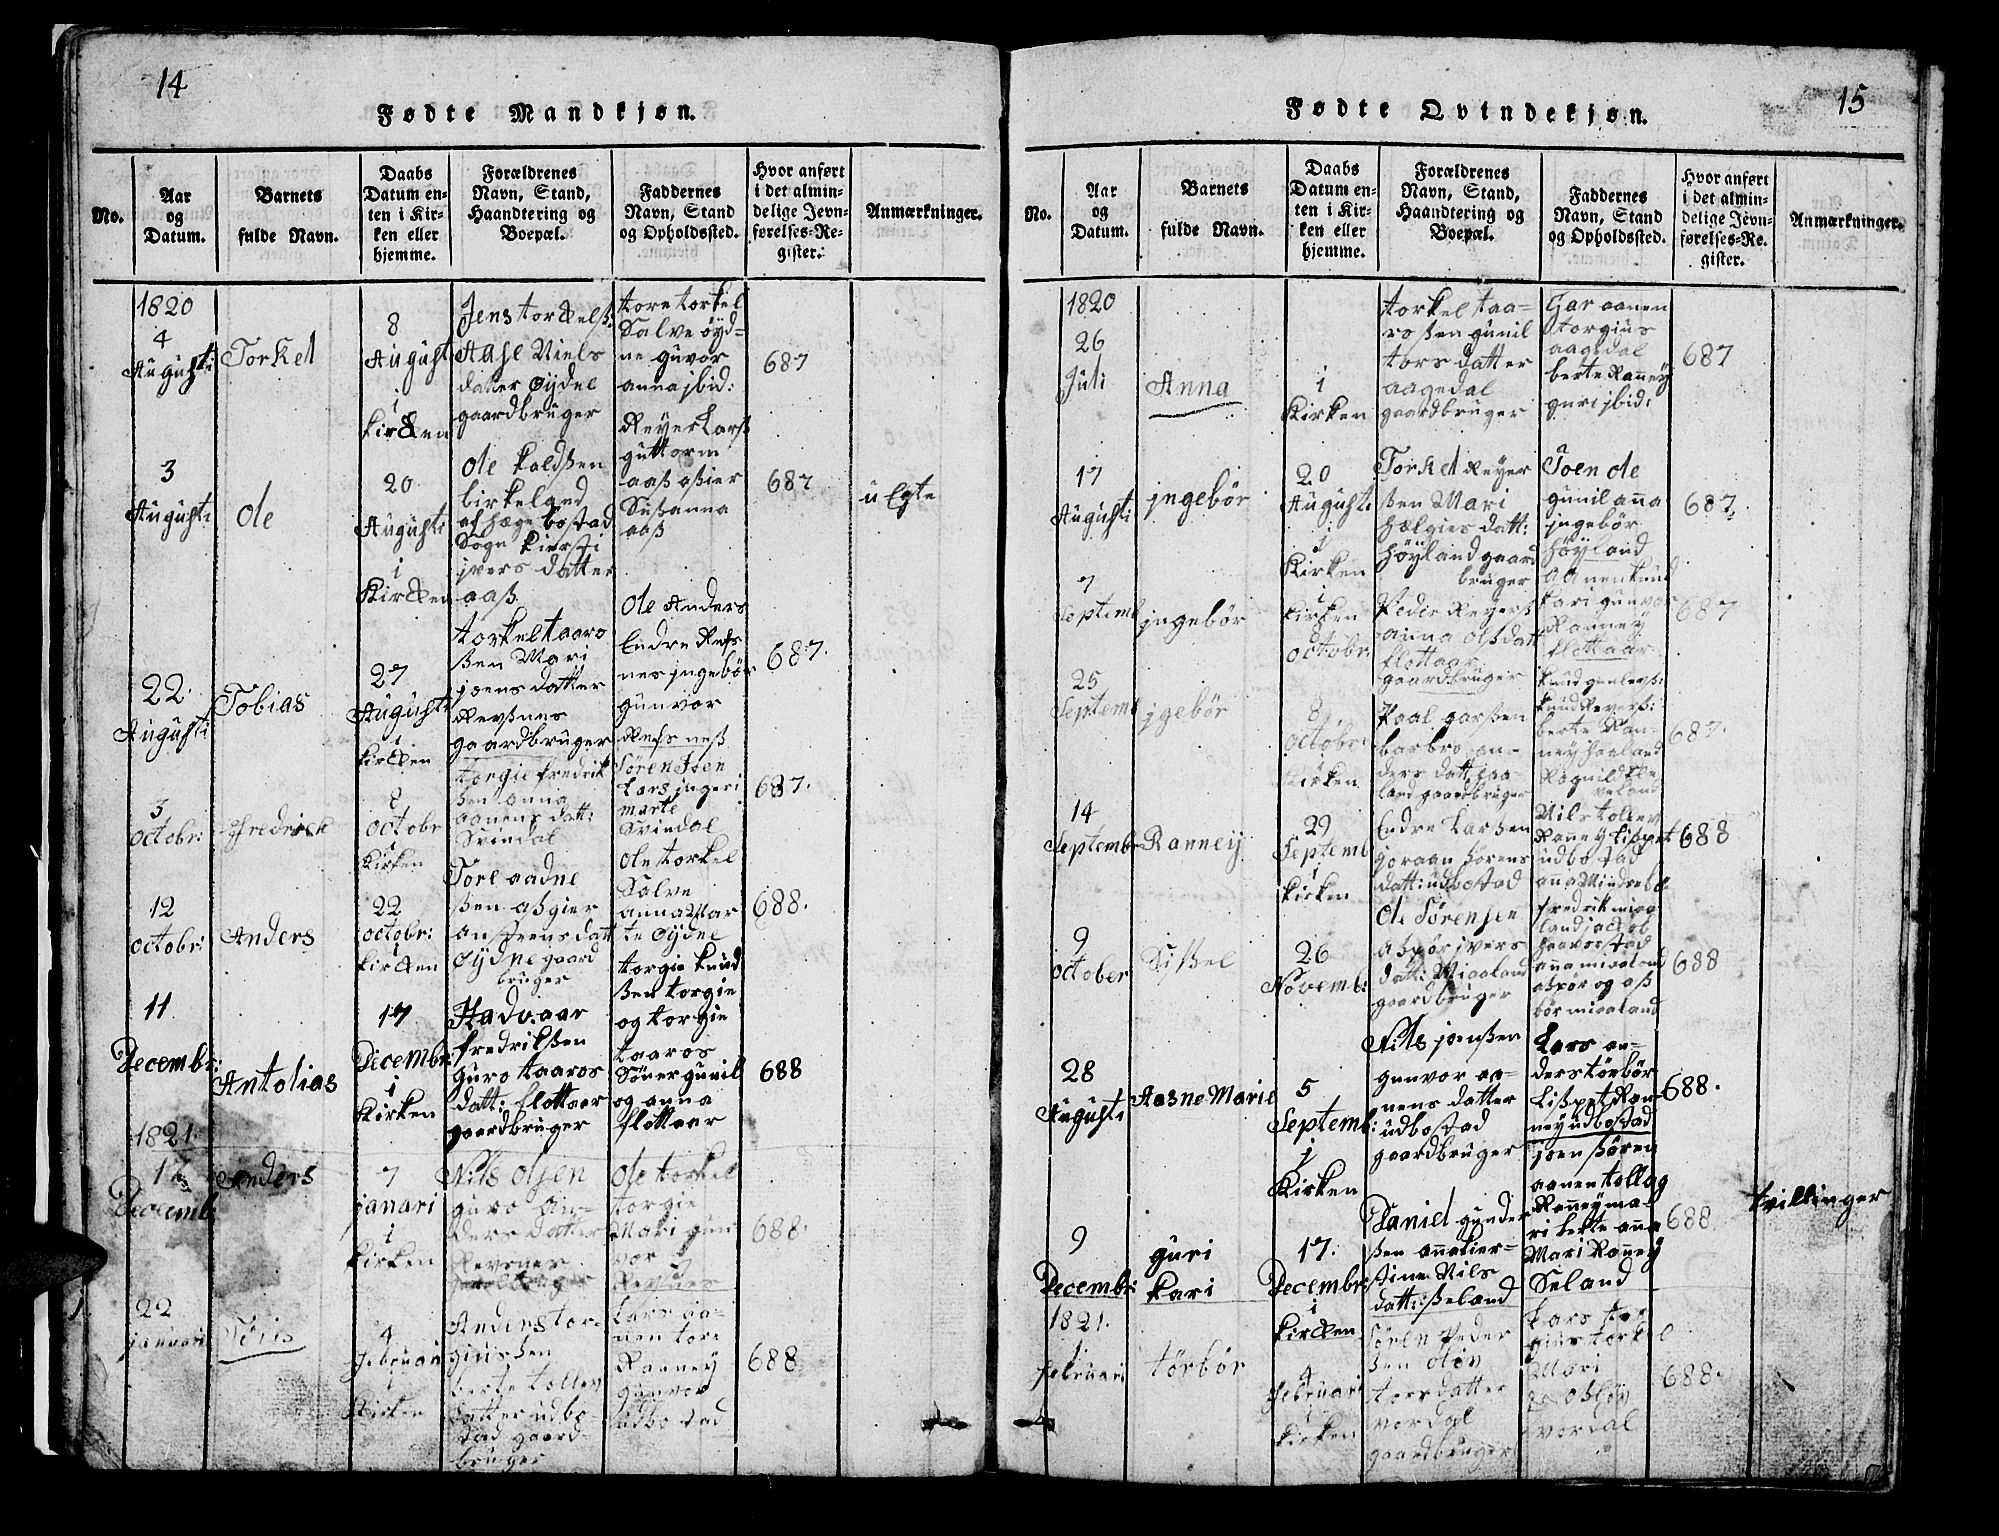 14
Fødte Mandkjøn.
No.
Aar
og
Datum.
Barnets
fulde Navn.
Daabs
Datum en-
ten i Kir-
ken eller
hjemme.
Forældrenes
Navn, Stand,
Haandtering og
Boepæl.
Faddernes
Navn, Stand
og Opholdssted.
Hvor anført
i det almin-
delige Jevn-
førelses-Re-
gister.
Anmærkninger.
1820
4
Augusti
Torkel
8
Augusti
i
kircken
Jens torckelsß:
Aase Niels
datter Øydne
gaardbruger
tore torkel
Salve øyd-
ne guvor
anna jbid:
687
3
Augusti
Ole
20
Augusti
i
Kircken
Ole
birkeland
af hægebostad
Sogn kiersti
jvers datter
aaß
Reyer Larß
guttorm
aaß aßier
Sußanna
aaß
687
u Egte
22
Augusti
Tobias
27
Augusti
i
kircken
torkel taaro
ßen Mari
joens datter
Revßnes
gaardbruger
Ole Anders
Endre Refs
nes jngebør
gunvor
Refs neß
687.
3
octobr:
Fredrick
8
octobr
i
kirken
torgie fredrik
ßen anna
aanens datt:
Svindal
Søren
Lars jngeri
marte
Svindal
687.
12
octobr:
Anders
22
octobr:
i
kircken
Tore aadne
ßen aßgier
datt
Øydne gaard
bruger
Ole torkel
Salve
anna Mar
te Øydne
688.
11
Decembr:
Antolias
17
Decembr:
i
Kirken
Hadvaar
fredrikßen
guro taaros
datt: flottaar
gaardbruger
torgie knud
ßen torgie
og torgie
taaros
Søner gunil
og anna
flottaar
688
1821.
12
Decemb:
Anders
7
janari
i
kirken
Nils Olsen
guro An-
ders datter
Revsnes
Ole torkel
torgie
Mari gun
vor
Revsnes
688.
22
januari
4
februari
i
Kirken
Anders tor-
giusßen
berte tollev
datter udbo-
stad gaard-
bruger
Lars aa-
nen tore
Ranney
gunvor
udbostad
688
15
Fødte Qvindekjøn.
No.
Aar
og
Datum.
Barnets
fulde Navn.
Daabs
Datum en-
ten i Kir-
ken eller
hjemme.
Forældrenes
Navn, Stand,
Haandtering og
Boepæl.
Faddernes
Navn, Stand
og Opholdssted.
Hvor anført
i det almin-
delige Jevn-
førelses-Re.
gister.
Anmærkninger.
1820
26
Juli
Anna
i
Kirken
torkel taa-
roßen gunil
tors datter
aagedal
gaardbruger
aanen
torgius
aagedal
berte Raney
guri jbid:
687
17
Augusti
jngebør
20
Augusti
j
Kirken
Torkel Reyer
ßen Mari
hælgies datt:
høyland gaard
bruger
Joen Ole
gunil aña
jngebør
høyland
687
7
Septemb
jngebør
1
kirken
octobr:
Peder Reyerß
anna olsdatt
flottaar
gaardbruger
aanen knud
kari gunvor
Ranney
flottaar
687
25
Septemb
jgebør
8
octobr:
kirken
Paal
barbro an-
ders datt: haa-
land gaardbruger
berte Ran-
ney haaland
Ragnild kle
veland
687.
14
Septembr
Ranney
29
Septemb
i
kirken
Endre Larßen
goraan Sørens
datt: udbostad
Nils tollev
Raney Lißpet
udbostad
688
9
october
Sißel
26
Novemb:
Ole Sørensen
aßbør jvers
datt: Migaland
gaardbruger
aßbør og aß
bør
688
28
Augusti
Aasne Marie
5
Septemb:
j
Kirken
Nils joensßen
gunvor aa-
nens datter
udbostad
gaardbruger
Lars an-
ders tørbør
Lißpet Ran-
ney udbostad
688.
9
Decembr:
guri
kari
17.
Decembr:
i
kircken
Daniel gunder
ßen
stine Nils
datt: ßeland
joen Søren
aanen tollag
Raney ma-
ri berte ana
Mari Raney
Seland
688
tvillinger
1821.
1
februari
tørbør
4
februari
i
kirken
Søren Peder
ßen
tors datter
vordal
gaardbruger
Lars tor
gius torkel
Mari
vordal
688.